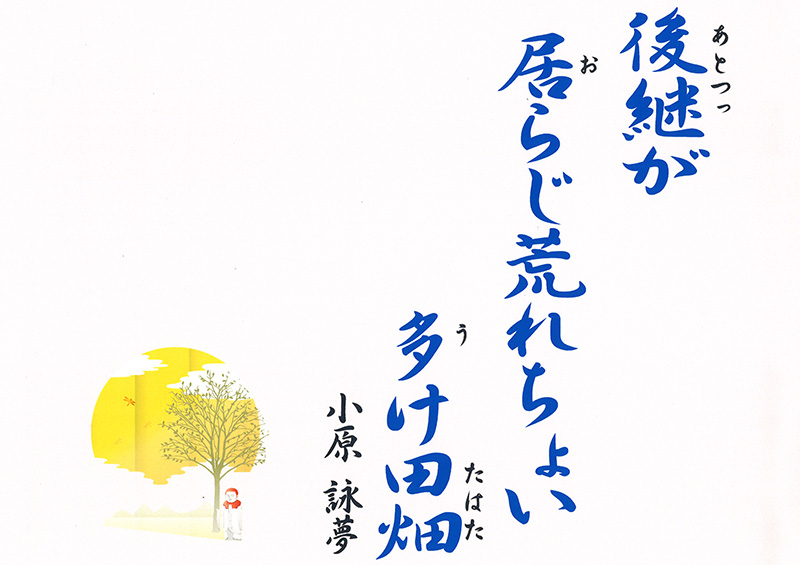 後継が
あとつっ
居らじ荒れちょい
お
多け田畑
う
たはた
小原 詠夢